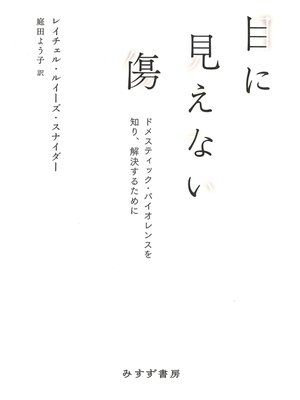 目に
見えない
傷
ドメスティック・バイオレンスを
知り、解決するために
レイチェル・ルイーズ・スナイダー
庭田よう子 訳
みすず書房